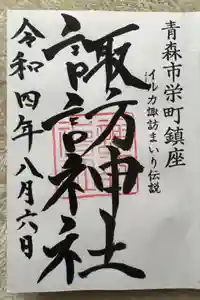 青森市栄町鎮座
イルカ諏訪まいり伝説
諏方神社
諏訪神社
令和四年八月六日